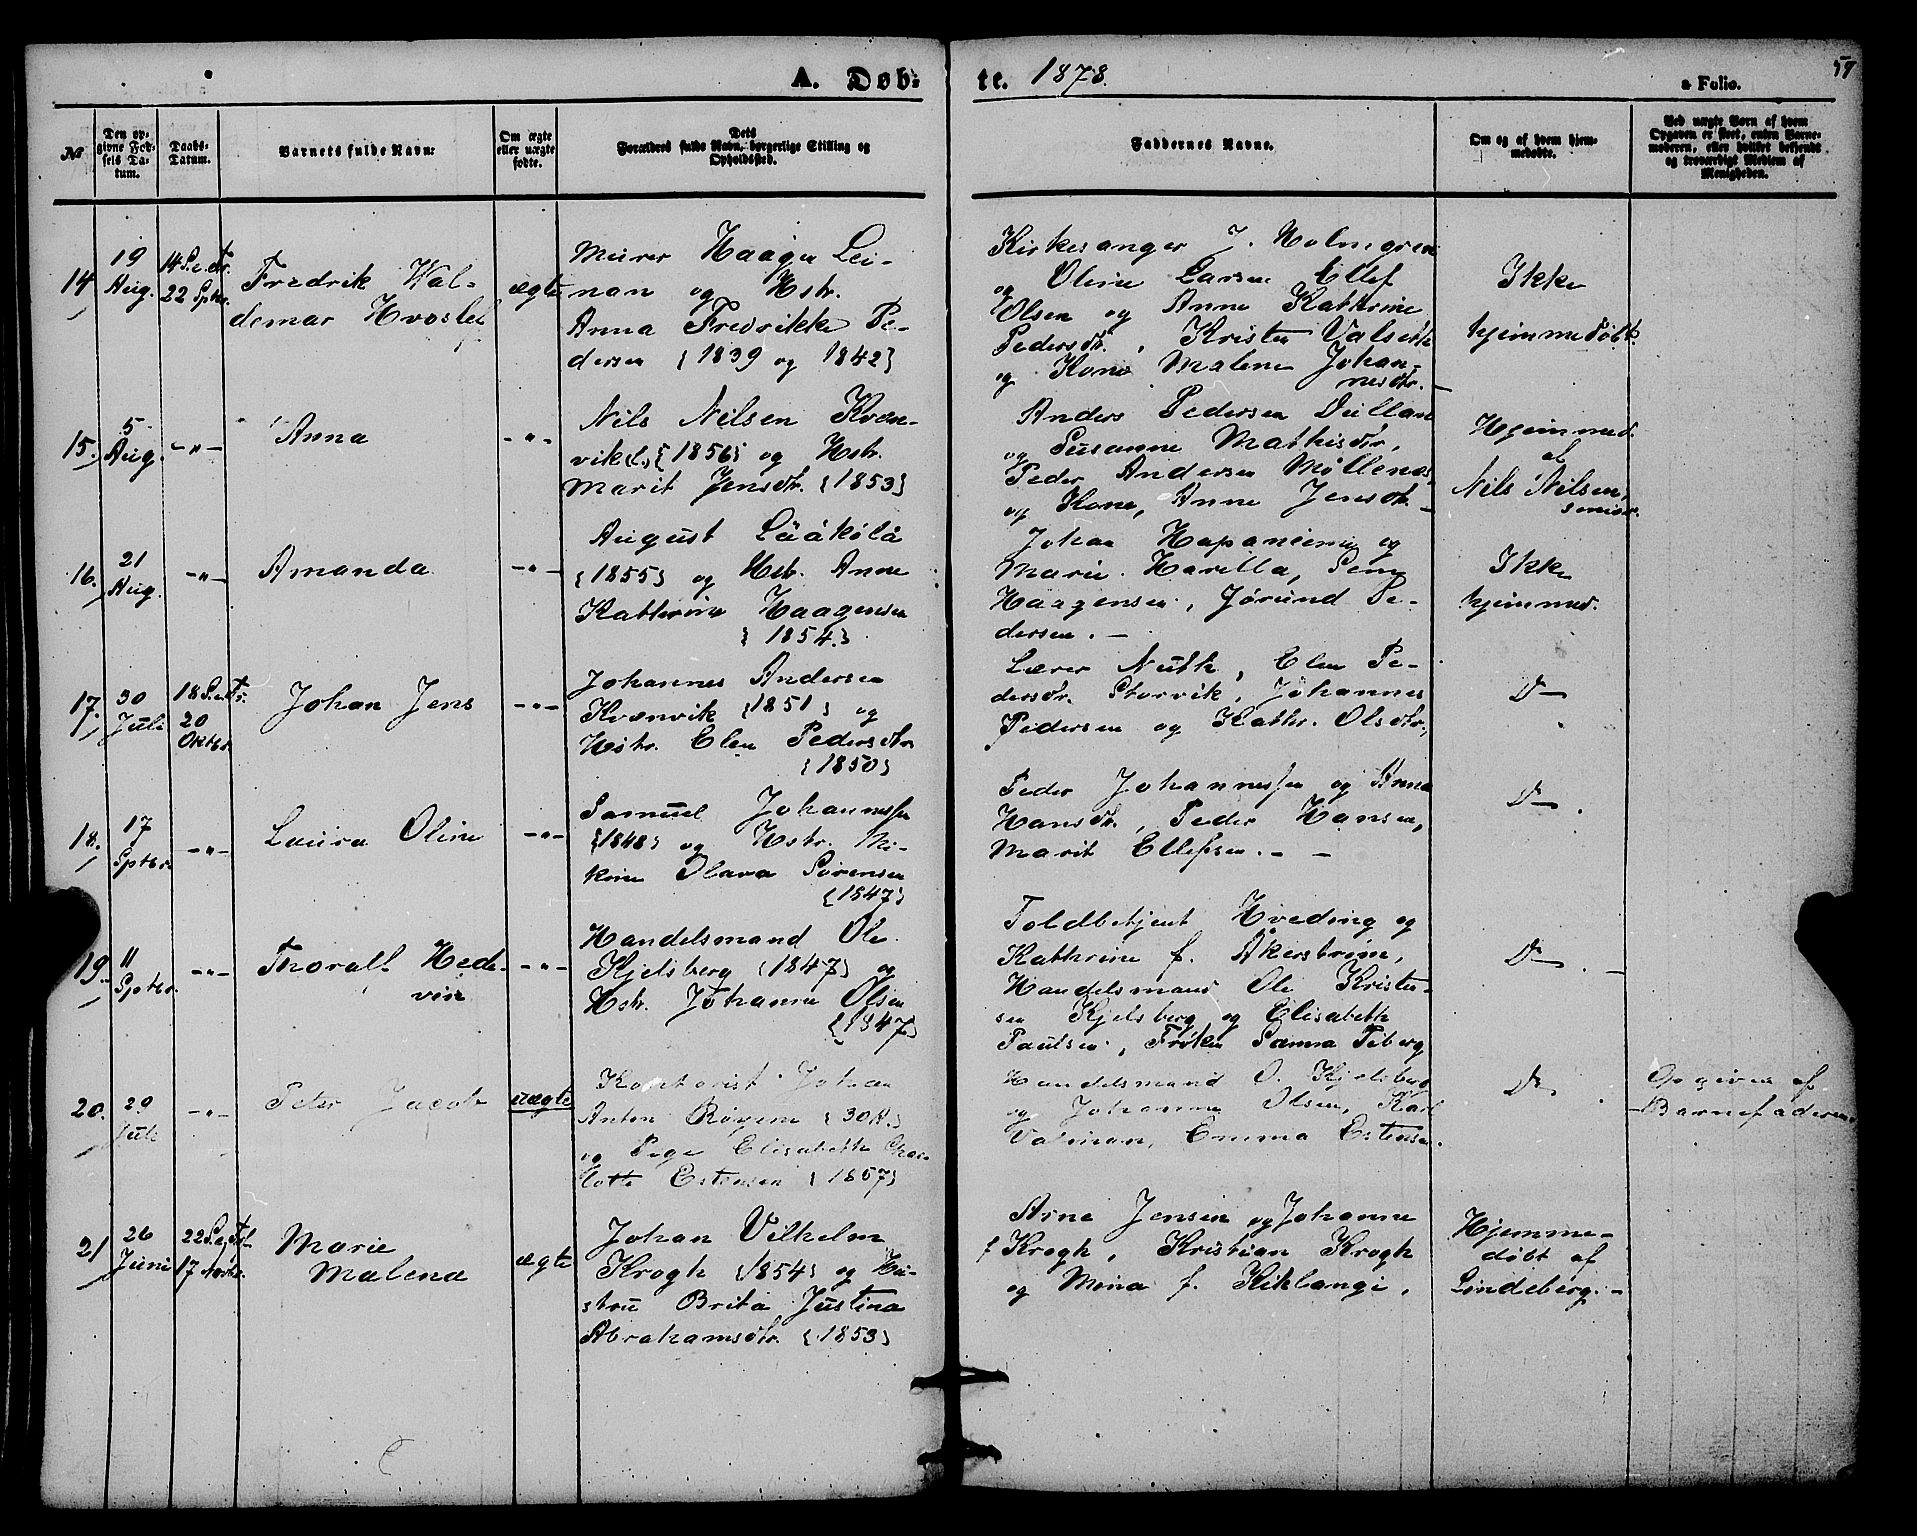 A. Døb-
te. 1878.
a Folio.
59
№
Den op-
givne Fød-
sels Da-
tum.
Daabs-
Datum.
Barnets fulde Navn:
Om ægte
eller uægte
fødte.
Dets
Forældres fulde Navn, borgerlige Stilling og
Opholdssted.
Faddernes Navne.
Om og af hvem hjem-
medøbte.
Ved uægte Børn af hvem
Opgaven er skeet, enten Barne-
moderen, eller hvilket bekjendt
og troværdigt Medlem af
Menigheden.
14
19
Aug.
14 S. e. Tr.
22 Sptbr.
Fredrik Wal-
demar Hvoslef
ægte
Murer Haagen Lei-
nan og Hstr.
Anna Fredrikke Pe-
dersen {1839 og 1842}
Kirkesanger J. Holmgren
og Oline Larsen Ellef
Olsen og Anne Kathrine
Pedersdtr., Kristen Valseth
og Kone Malene Johan-
nesdtr. –
Ikke
hjemmedøbt.
15.
5
Aug.
-"-
Anna
-"-
Nils Nilsen Kvæn-
vik {1856} og Hstr.
Marit Jensdtr. {1853}
Anders Pedersen
og Susanne Mathisdtr,
Peder Andersen Møllenæs,
og Kone, Anne Jensdtr. –
Hjemmed.
af
Nils Nilsen,
senior.
16.
21
Aug.
-"-
Amanda
-"-
August Lääkölä
{1855} og Hstr. Anne
Kathrine Haagensen
{1854.}
Johan Hapaniemi og
Marie Harilla,
Haagensen, Jørund Pe-
dersen. –
Ikke
hjemmed.
17.
30
Juli
18 S. e. Tr.
20
Oktbr.
Johan Jens
-"-
Johannes Andersen
Kvænvik {1851} og
Hstr. Elen Pedersdtr
{1850}
Lærer Nuth, Elen Pe-
dersdtr. Storvik, Johannes
Pedersen og Kathr. Olsdtr,
Do
18.
17
Sptbr.
-"-
Laura Oline
-"-
Samuel Johannessen
{1848} og Hstr. Mi-
kine Olava Sørensen
{1847}
Peder Johannessen og Anna
Hansdtr, Peder Hansen,
Marit Ellefsen. – –
Do .
19.
11
Sptbr.
-"-
Thoralf Hed-
vin
-"-
Handelsmand Ole
Kjelsberg {1847} og
Hstr. Johanne Olsen
{1847}
Toldbetjent Hveding og
Kathrine f. Åkerstrøm,
Handelsmand Ole Kristen-
sen Kjelsberg og Elisabeth
Paulsen, Frøken Sanna Feberg
Do .–
20.
29
Juli
-"-
Peter Jacob
uægte
Kontorist Johan
Anton Røyem {30 A.}
og Pige Elisabeth Char-
lotte Estensen {1857}
Handelsmand O. Kjelsberg
og Johanne Olsen, Karl
Valman, Emma Estensen.
Do .
Opgiven af
Barnefaderen
21
26
Juni
22 S. e. Tr.
17 Novbr.
Marie
Malena
ægte
Johan Vilhelm
Krogh {1854} og Hu-
stru Brita Justina
Abrahamsdtr. {1853}
Arne Jensen og Johanne
f Krogh, Kristian Krogh
og Mina f. Kiklangi,
Hjemme-
døbt af
Lindeberg. –